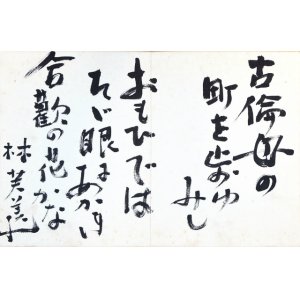 古倫母の
町を歩ゆ
みし
おもひでは
そが眼にあかき
合歓の花かな
林芙美子